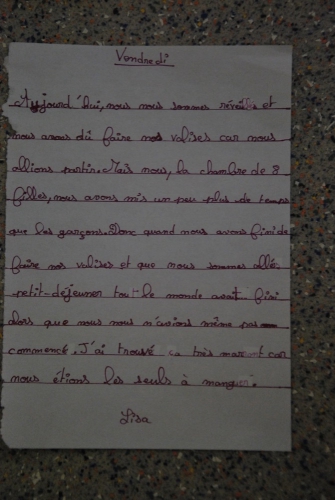 Vendredi
Aujourd'hui, nous nous sommes réveillés et
nous avons dû faire nos valises car nous
allions partir. Mais nous, la chambre de 8
filles, nous avons mis un peu plus de temps
que les garçons. Donc quand nous avons fini de
faire nos valises et que nous sommes allé
petit-déjeuner tout le monde avait fini
alors que nous nous n'avions même pas
commencé. J'ai trouvé ça très marrant car
nous étions les seuls à manger.
Lisa